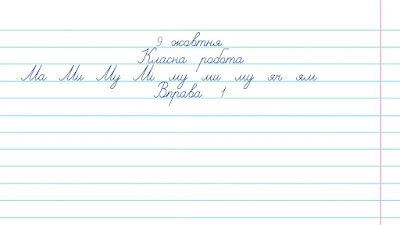 9 жовтня
Класна робота
Ма Ми Му Мі му ми му яч ям
Вправа 1